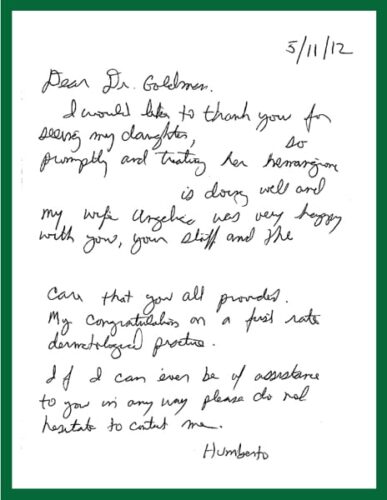 5/11/12
Dear Dr. Goldman.
I would like to thank you for
seeing my daughter, so
promptly and treating her hemangioma
is doing well and
my wife Angelica was very happy
with you, your staff and the
care that you all provided.
My congratulations on a first rate
dermatological practice.
If I can ever be of assistance
to you in any way please do not
hesitate to contact me.
Humberto